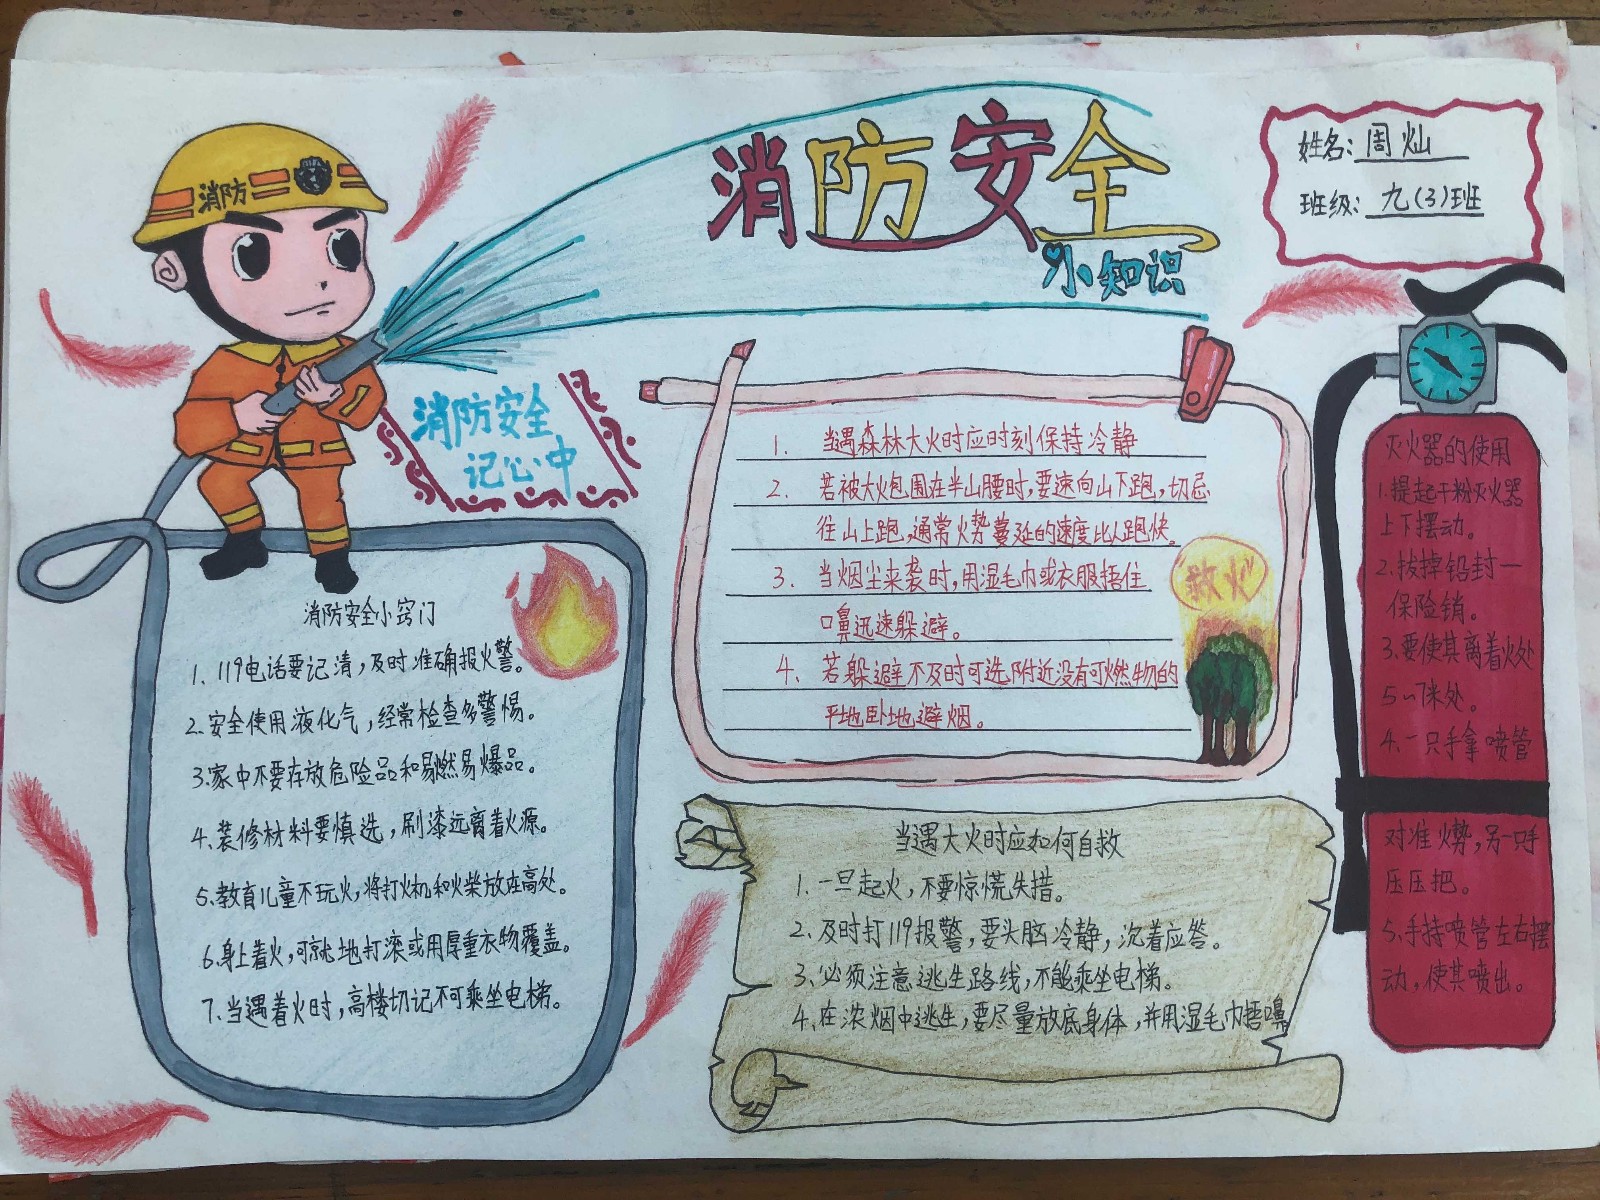 消防安全
小知识
姓名:周灿
班级:九(3)班
消防
消防安全
记心中
消防安全小窍门
1、119电话要记清,及时准确报火警。
2、安全使用液化气,经常检查多警惕。
3、家中不要存放危险品和易燃易爆品。
4、装修材料要慎选,刷漆远离着火源。
5、教育儿童不玩火,将打火机和火柴放在高处。
6、身上着火,可就地打滚或用厚重衣物覆盖。
7、当遇着火时,高楼切记不可乘坐电梯。
1. 当遇森林大火时应时刻保持冷静
2. 若被大火包围在半山腰时,要速向山下跑,切忌
往山上跑,通常火势蔓延的速度比人跑快。
3、当烟尘来袭时,用湿毛巾或衣服捂住
口鼻迅速躲避。
4、若躲避不及时可选附近没有可燃物的
平地卧地避烟。
救火
当遇大火时应如何自救
1、一旦起火,不要惊慌失措。
2、及时打119报警,要头脑冷静,沉着应答。
3、必须注意逃生路线,不能乘坐电梯。
4、在浓烟中逃生,要尽量放底身体,并用湿毛巾捂嘴鼻
灭火器的使用
1.提起干粉灭火器
上下摆动。
2.拔掉铅封一
保险销。
3.要使其离着火处
5~7米处。
4.一只手拿喷管
对准火势,另一只手
压压把。
5.手持喷管左右摆
动,使其喷出。